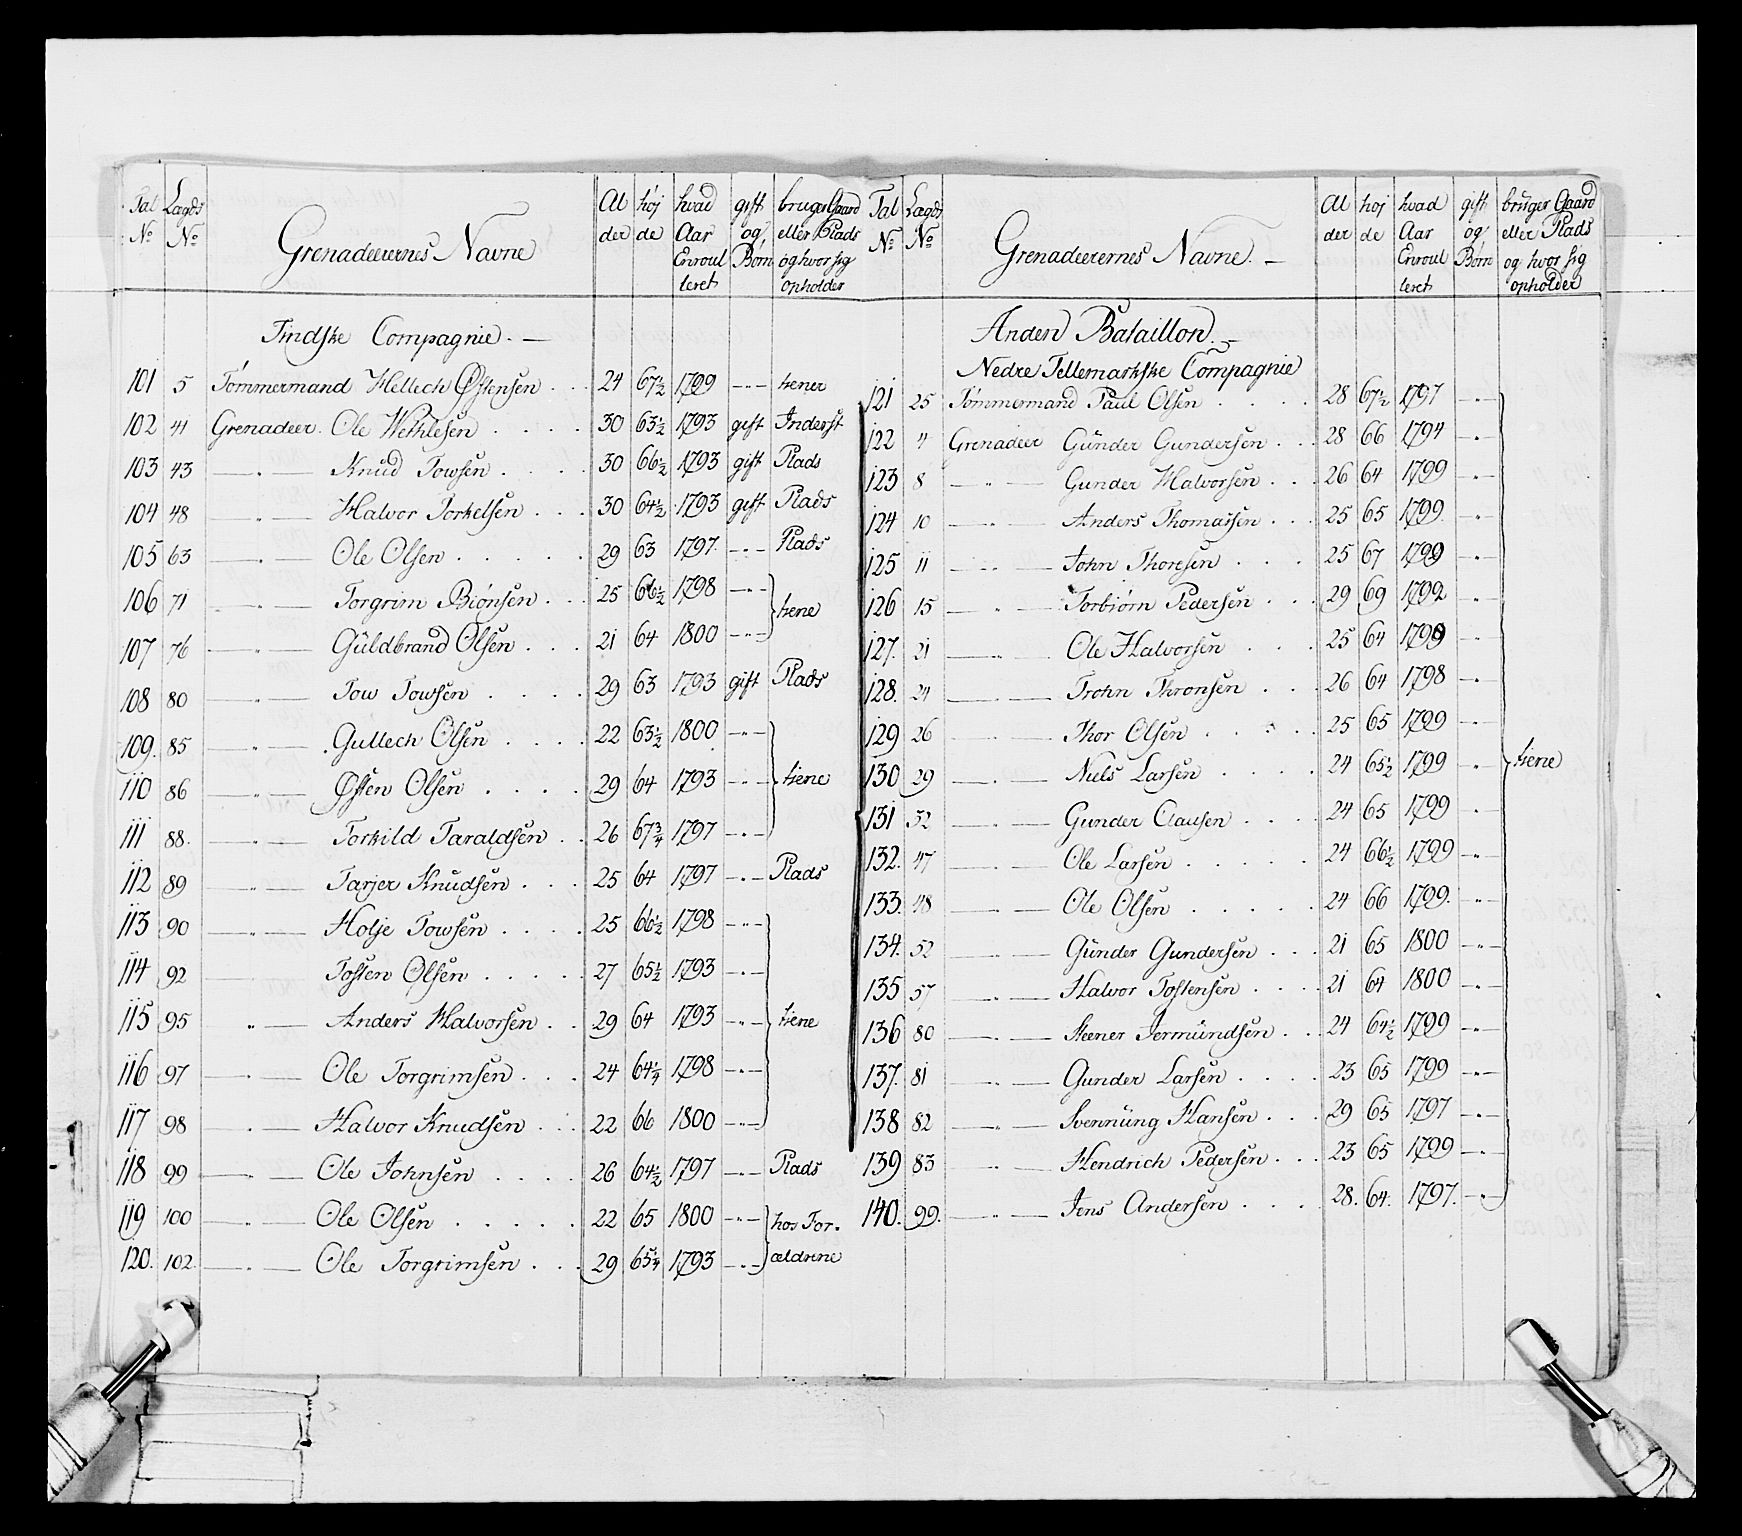 Tal No | Lægds No | Grenadeerernes Navne | Al der | høj de | hvad Aar Enroul leret | gift og Børn | bruger Gaard eller Plads og hvor sig opholder
Tindske Compagnie. —
101 | 5 | Tømmermand Hellech Østensen . . | 24 | 67½ | 1799 | —„— | tiener
102 | 41 | Grenadeer. Ole Wethlesen . . . . | 30 | 63½ | 1793 | gift | Inderst
103 | 43 | —„— Knud Towsen . . . . | 30 | 66½ | 1793 | gift | Plads
104 | 48 | —„— Halvor Torkelsen . . . | 30 | 64½ | 1793 | gift | Plads
105 | 63 | —„— Ole Olsen . . . . . | 29 | 63 | 1797. | —„— | Plads
106 | 71 | —„— Torgrim Biönsen . . . | 25 | 66½ | 1798 | —„— | tiene
107 | 76 | —„— Güldbrand Olsen . . . | 21 | 64 | 1800 | —„—
108 | 80 | —„— Tow Towsen . . . . | 29 | 63 | 1793 | gift | Plads
109. | 85 | —„— Gullech Olsen . . . . | 22 | 63½ | 1800 | —„—
110 | 86 | —„— Østen Olsen . . . . | 29 | 64 | 1793 | —„— | tiene
111 | 88. | —„— Torkild Taraldsen . . | 26 | 67¾ | 1797 | —„—
112 | 89 | —„— Tarjer Knudsen . . . | 25 | 64 | 1797 | —„— | Plads
113 | 90 | —„— Holje Towsen . . . . | 25 | 66½ | 1798 | —„—
114 | 92 | —„— Tosten Olsen . . . . . | 27 | 65½ | 1793 | —„—
115 | 95 | „— Anders Halvorsen . . | 29 | 64 | 1793 | —„— | tiene
116 | 97 | —„— Ole Torgrimsen . . . | 24 | 64¼ | 1798 | —„—
117 | 98 | —„— Halvor Knudsen . . . | 22 | 66 | 1800 | —„—
118 | 99 | —„— Ole Johnsen . . . . | 26 | 64½ | 1797 | —„— | Plads
119 | 100 | —„— Ole Olsen . . . . . | 22 | 65 | 1800 | —„— | hos For-
120. | 102. | —„— Ole Torgrimsen . . . | 29 | 65¼ | 1793 | —„— | ældrene
Tal No | Lægds No | Grenadeerernes Navne. — | Al der | høj de | hvad Aar Enroul leret | gift og Børn | bruger Gaard eller Plads og hvor sig opholder
Anden Bataillon. —
Nedre Tellemarkske Compagnie
121 | 25 | Tømmermand Paul Olsen . . . . | 28 | 67½ | 1797 | —„—
122 | 4 | Grenadeer Günder Gundersen . . | 28 | 66 | 1794 | —„—
123 | 8 | —„— Gunder Halvorsen . . . | 26 | 64 | 1799 | —„—
124 | 10 | —„— Anders Thomassen . . . | 25 | 65 | 1799 | „
125 | 11 | —„— John Thoresen . . . | 25 | 67 | 1799 | —„—
126 | 15 | —„— Torbiørn Pedersen . . . | 29 | 69 | 1792 | —„—
127. | 21 | —„— Ole Halvorsen . . . | 25 | 64 | 1799 | „
128. | 24 | —„— Trohn Thronsen . . . | 26 | 64 | 1798 | —„—
129 | 26 | —„— Thor Olsen . . . . | 25 | 65 | 1799 | —„—
130 | 29 | —„— Niels Larsen . . . . | 24 | 65½ | 1799 | „ | tiene
131 | 32 | —„— Gunder Clausen . . . . | 24 | 65 | 1799 | —„—
132. | 47 | —„— Ole Larsen . . . . . | 24 | 66½ | 1799 | —„—
133. | 48 | —„— Ole Olsen . . . . . | 24 | 66 | 1799. | —„—
134. | 52 | —„— Günder Gundersen . . . | 21 | 65 | 1800 | —„—
135 | 57 | —„— Halvor Tostensen . . . . | 21 | 64 | 1800 | —„—
136 | 80 | —„— Steener Jermündsen . . | 24 | 64½ | 1799 | —„—
137. | 81 | —„— Gunder Larsen . . . . | 23 | 65 | 1799 | —„—
138 | 82 | —„— Svennüng Hansen . . . | 29 | 65 | 1797 | —„—
139 | 83 | —„— Hendrich Pedersen . . . | 23 | 65 | 1799 | —„—
140. | 99. | —„— Jens Andersen . . . . | 28. | 64. | 1797. | —„—